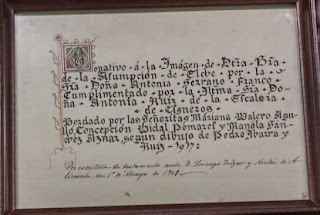 Donativo á la Imágen de Ntra Sra
de la Asumpción de Elche por la
Sra Doña Antonia Serrano Franco
Cumplimentado por la Ilma Sra Do-
ña Antonia Ruiz de la Escalera
de Cisneros
Bordado por las Señoritas Mariana Valero Agu-
lló Concepción Vidal Pomares y Manola San-
chez Aznar, según dibujo de Pedro Ibarra y
Ruiz - 1917
Por escritura de testamento ante D. Lorenzo
licante, en 1º de Mayo de 1908